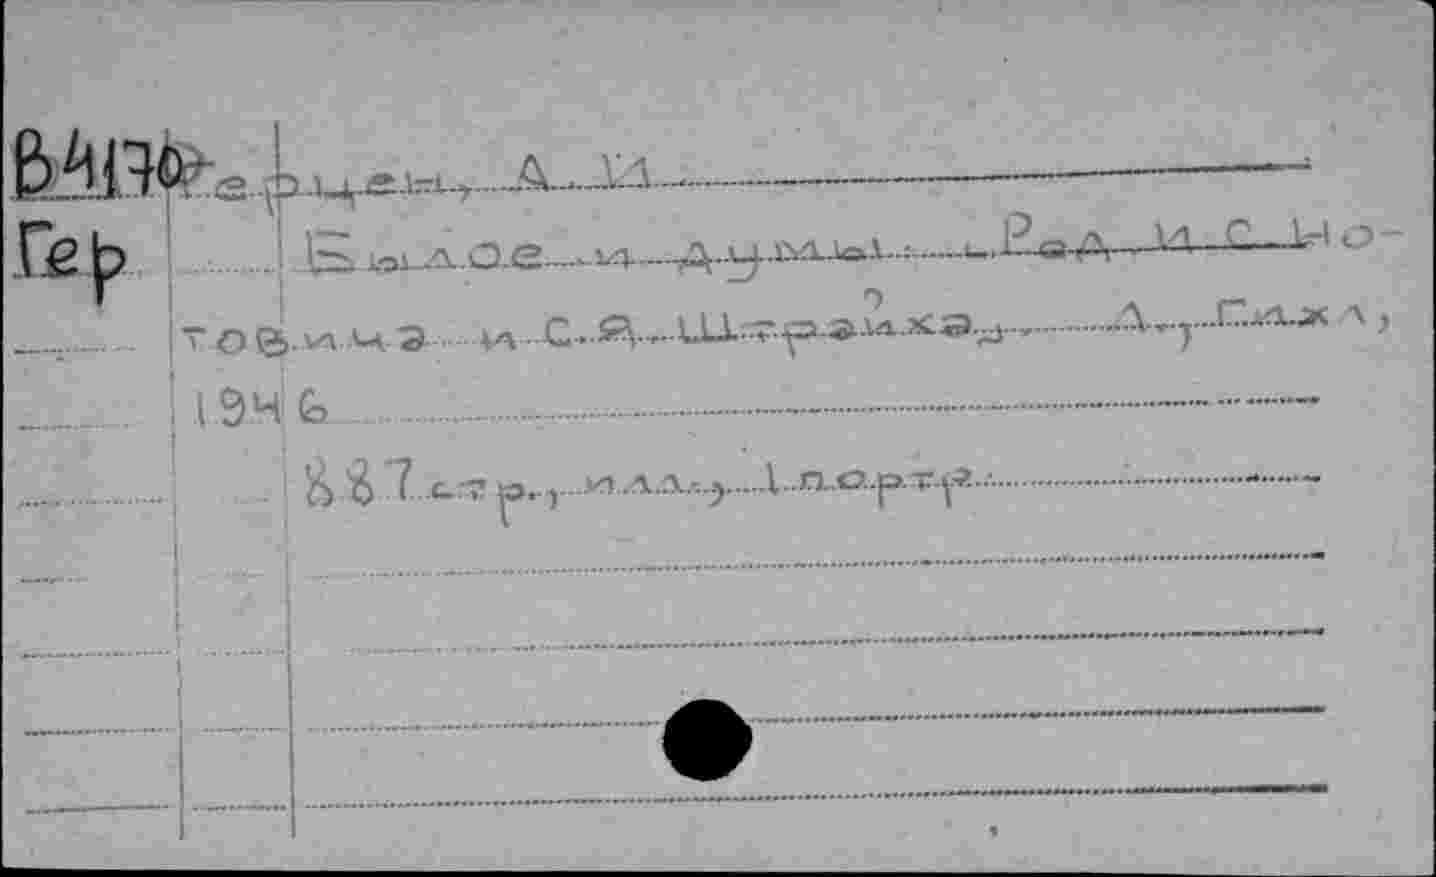 В4170 Герцен, А. И.
Гер Былое и думы. Ред И С Но-
товича и С. Я. Штрайха. Л., Гихл,
1946
887 стр., илл., 1 портр.